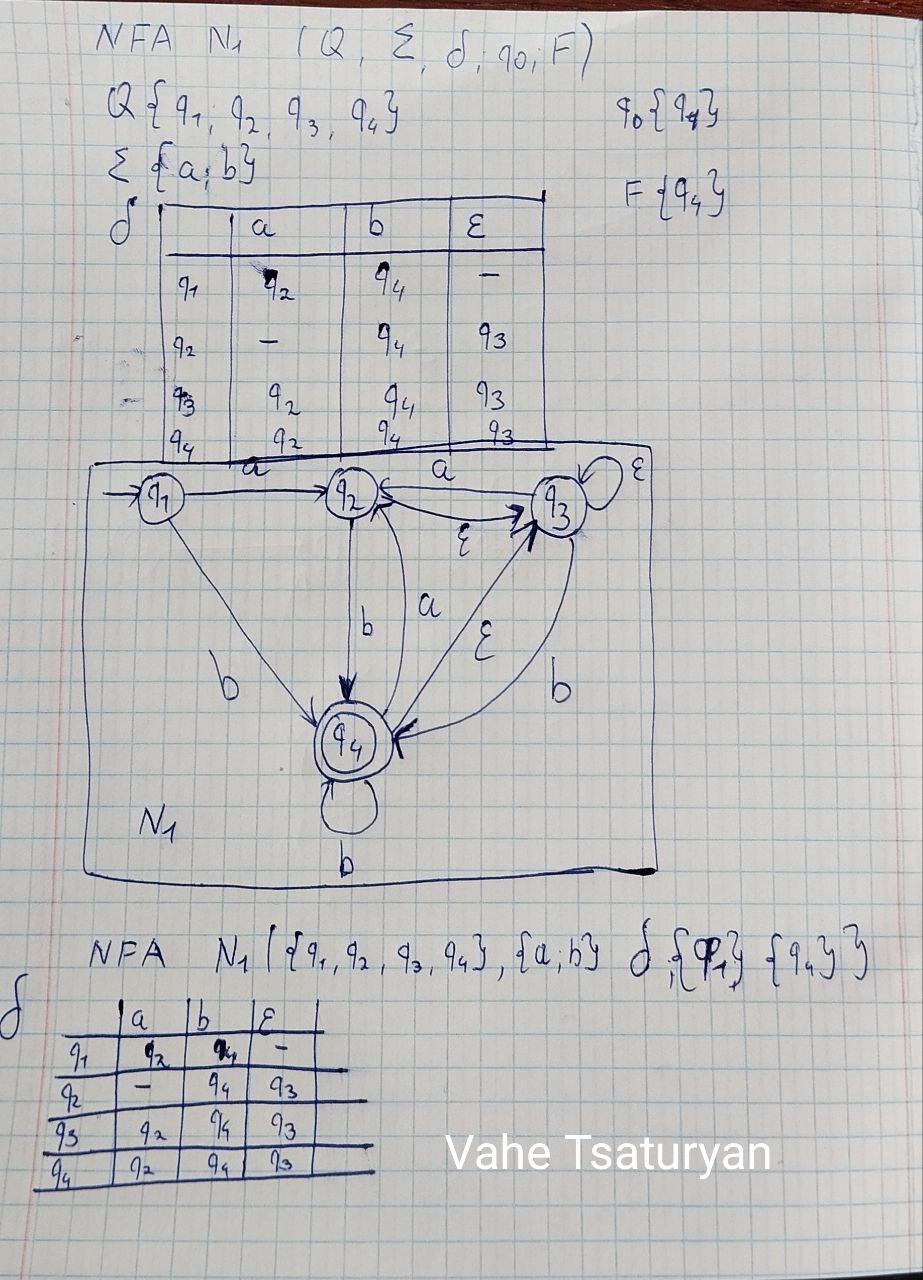 NFA N₁ (Q, Σ, δ; q₀; F)
Q{q₁; q₂, q₃, q₄} q₀{q₁}
Σ {a; b}
F{q₄}
δ a b ε
q₁ q₂ q₄ –
q₂ – q₄ q₃
q₃ q₂ q₄ q₃
q₄ q₂ q₄ q₃
a a ε
q₁ q₂ q₃
ε
b a ε
b b
q₄
N₁
b
NFA N₁({q₁, q₂, q₃, q₄}, {a; b} δ, {q₁}, {q₄})
δ a b ε
q₁ q₂ q₄ –
q₂ – q₄ q₃
q₃ q₂ q₄ q₃
q₄ q₂ q₄ q₃
Vahe Tsaturyan